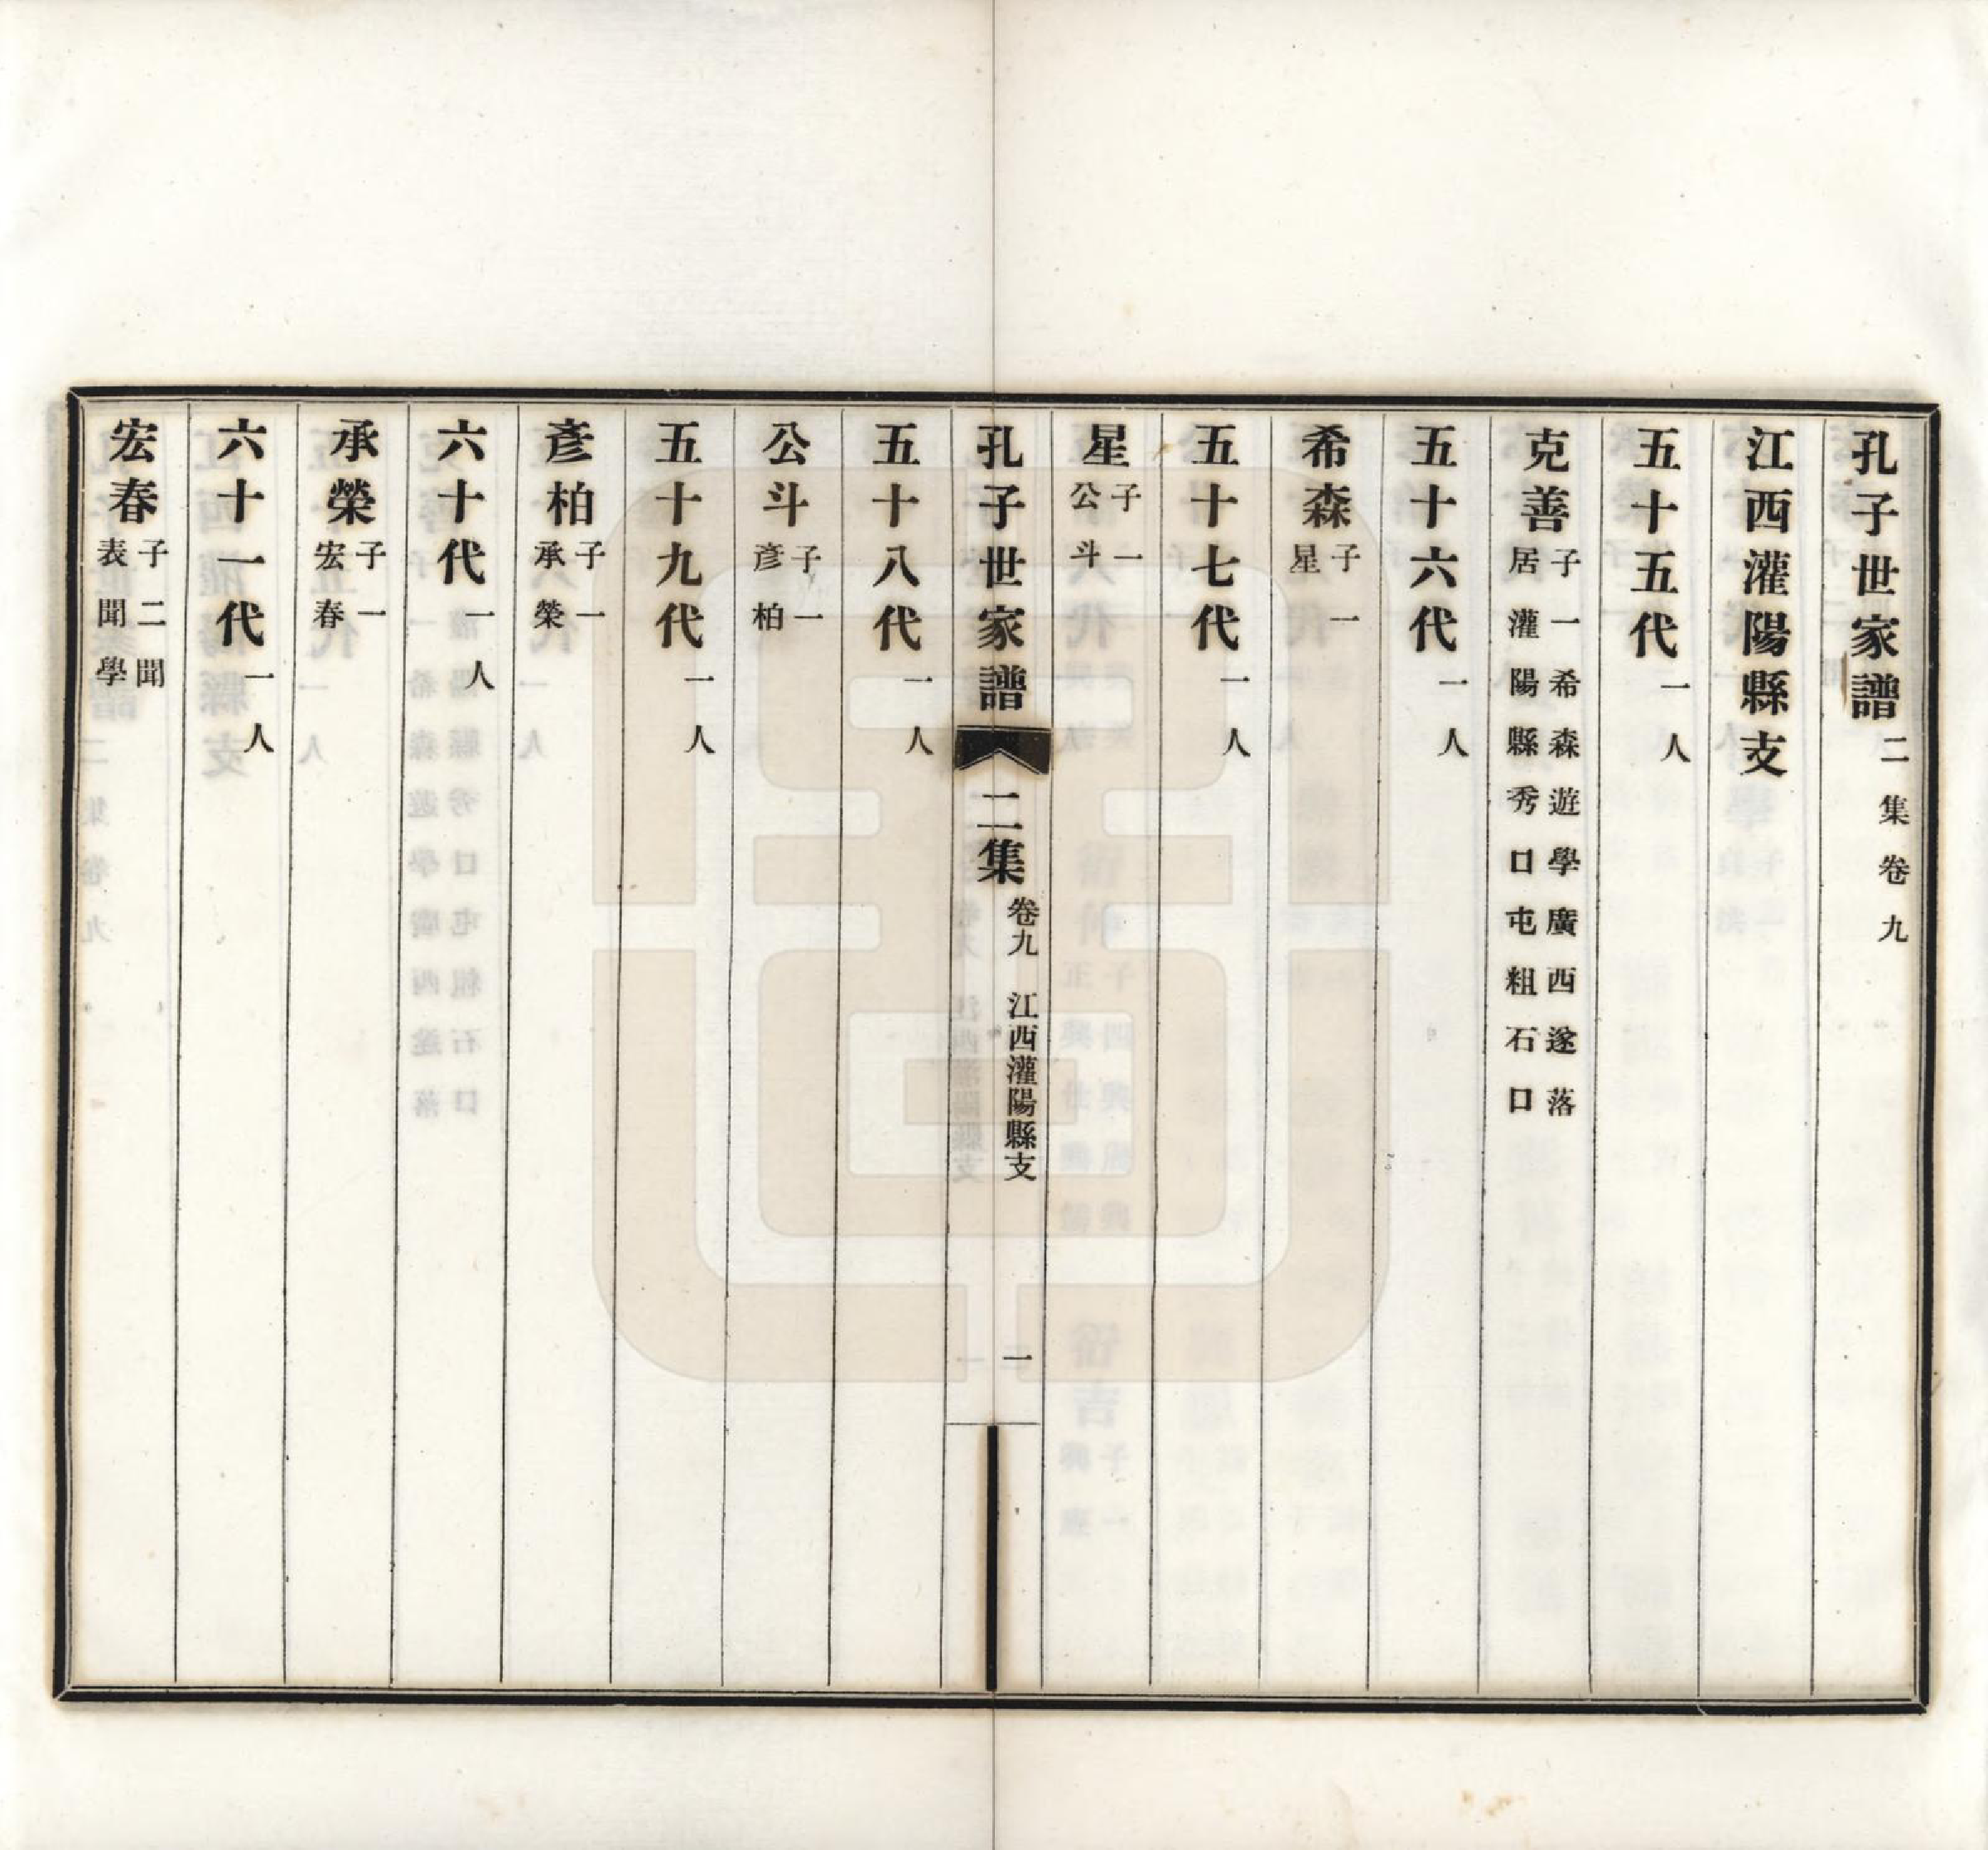 孔子世家譜二集卷九
江西灌陽縣支
五十五代一人
克善子一希森遊學廣西遂落居灌陽縣秀口屯粗石口
五十六代一人
希森子一星
五十七代一人
星子一公斗
孔子世家譜 二集 卷九 江西灌陽縣支 一
五十八代一人
公斗子一彥柏
五十九代一人
彥柏子一承榮
六十代一人
承榮子一宏春
六十一代一人
宏春子二聞表聞學